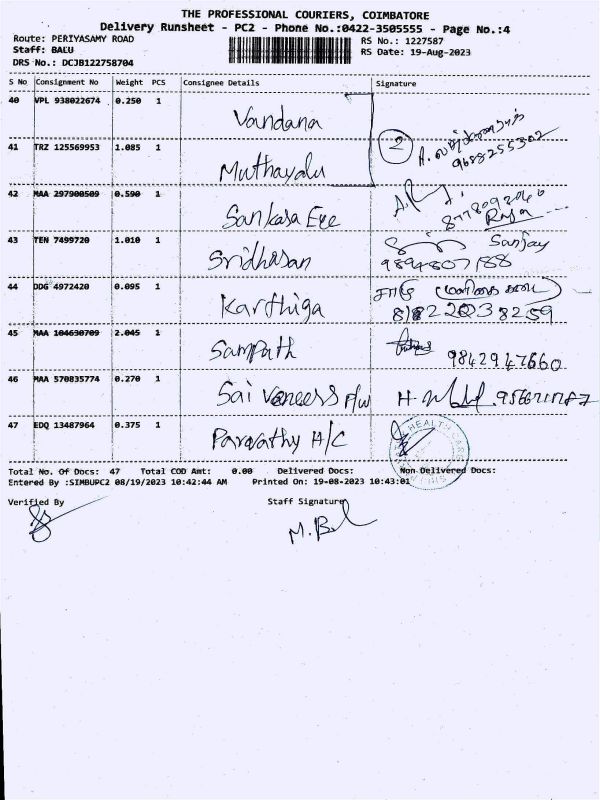 THE PROFESSIONAL COURIERS, COIMBATORE
Delivery Runsheet - PC2 - Phone No.:0422-3505555 - Page No.:4
Route: PERIYASAMY ROAD
RS No.: 1227587
Staff: BALU
RS Date: 19-Aug-2023
DRS No.: DCJB122758704
S No Consignment No Weight PCS Consignee Details Signature
40 VPL 938022674 0.250 1 Vandana
41 TRZ 125569953 1.085 1 Muthayalu 2 A.
9688255302
42 MAA 297900509 0.590 1 Sankara Eye
43 TEN 7499720 1.010 1 Sridharan Sanjay
9894807188
44 DDG 4972420 0.095 1 Karthiga
45 MAA 104630709 2.045 1 Sampath 9842947660
46 MAA 570835774 0.270 1 Sai H.
47 EDQ 13487964 0.375 1 Parvathy H/C
HEALTH CARE
Total No. Of Docs: 47 Total COD Amt: 0.00 Delivered Docs: Non-Delivered Docs:
Entered By :SIMBUPC2 08/19/2023 10:42:44 AM Printed On: 19-08-2023 10:43:01
Verified By Staff Signature